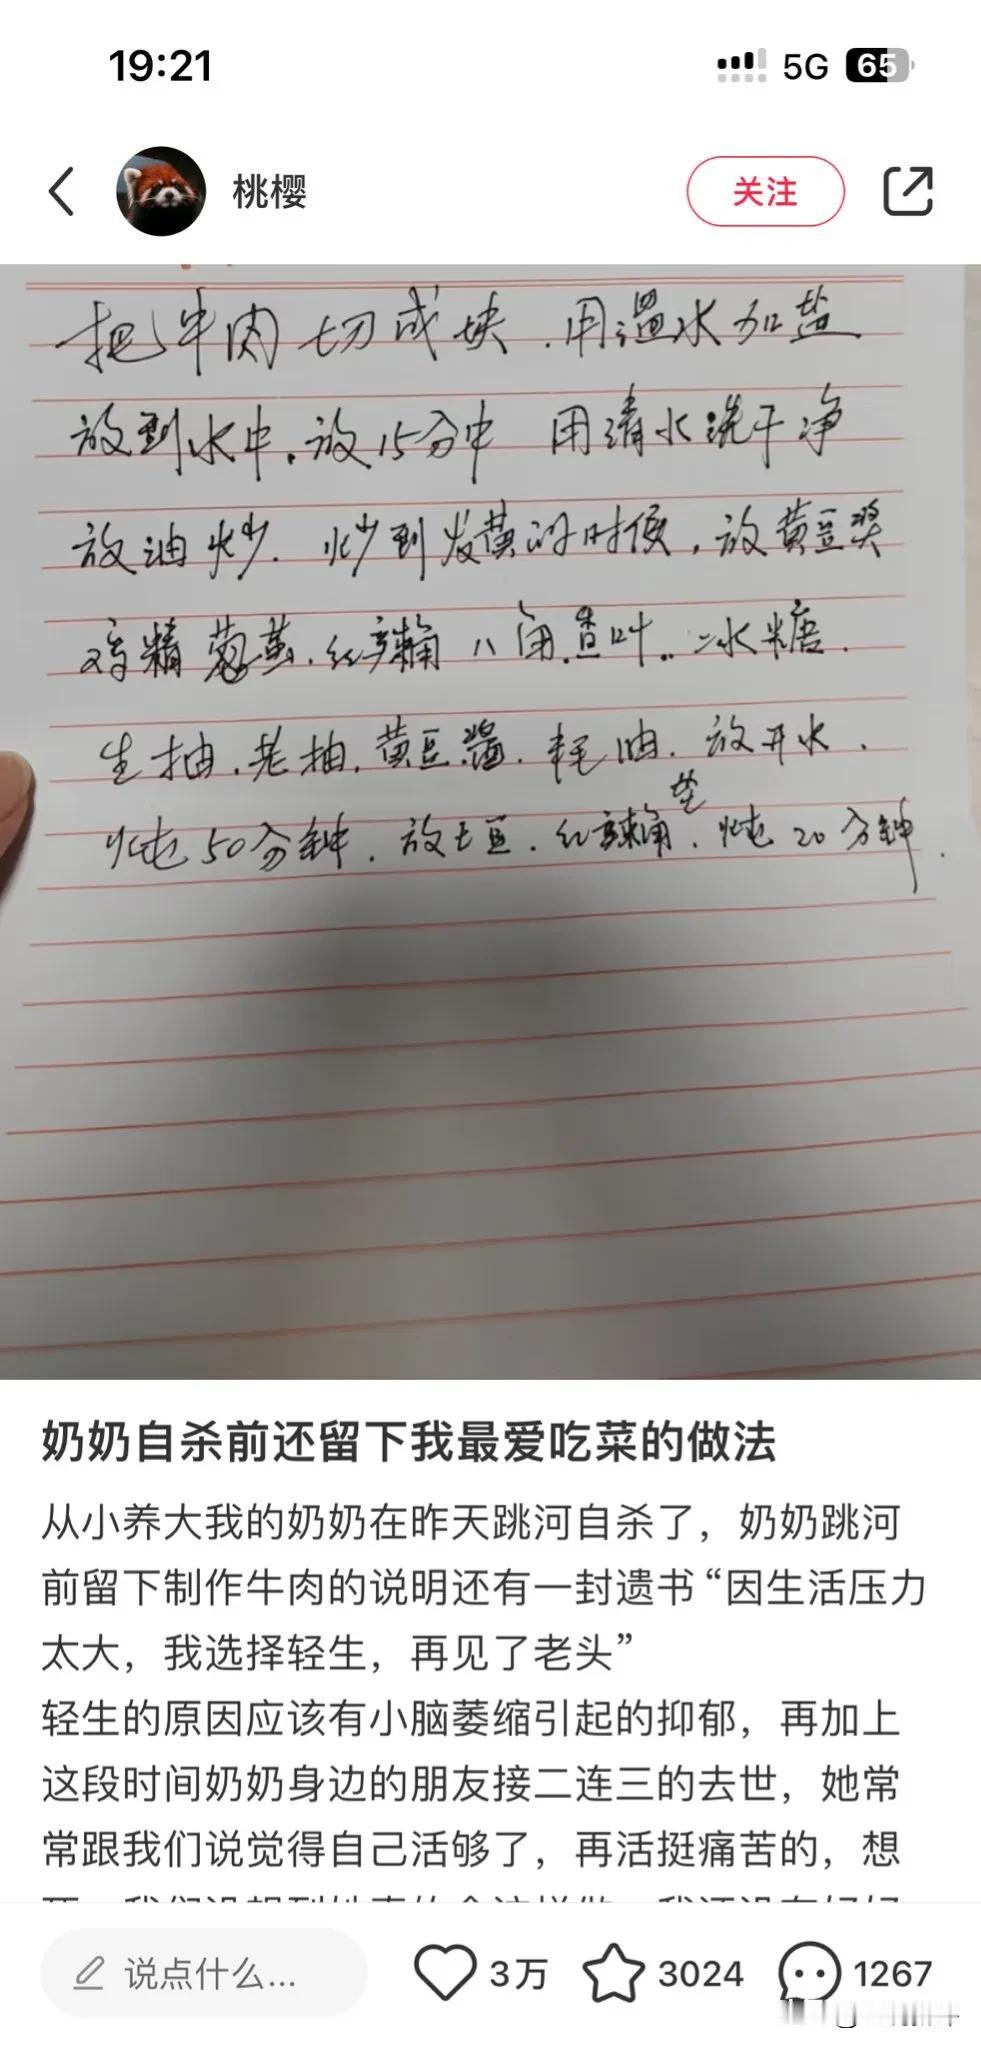 19:21
5G 65
桃樱
关注
把牛肉切成块.用温水加盐
放到水中.放15分中 用清水洗干净
放油炒.炒到发黄的时候,放黄豆奖
鸡精 葱 .红辣角 八角.香叶..冰糖.
生抽.老抽.黄豆酱.耗油.放开水.
炖50分钟.放土豆.红辣角.炖20分钟.
奶奶自杀前还留下我最爱吃菜的做法
从小养大我的奶奶在昨天跳河自杀了，奶奶跳河
前留下制作牛肉的说明还有一封遗书“因生活压力
太大，我选择轻生，再见了老头”
轻生的原因应该有小脑萎缩引起的抑郁，再加上
这段时间奶奶身边的朋友接二连三的去世，她常
常跟我们说觉得自己活够了，再活挺痛苦的，想
说点什么...
3万
3024
1267